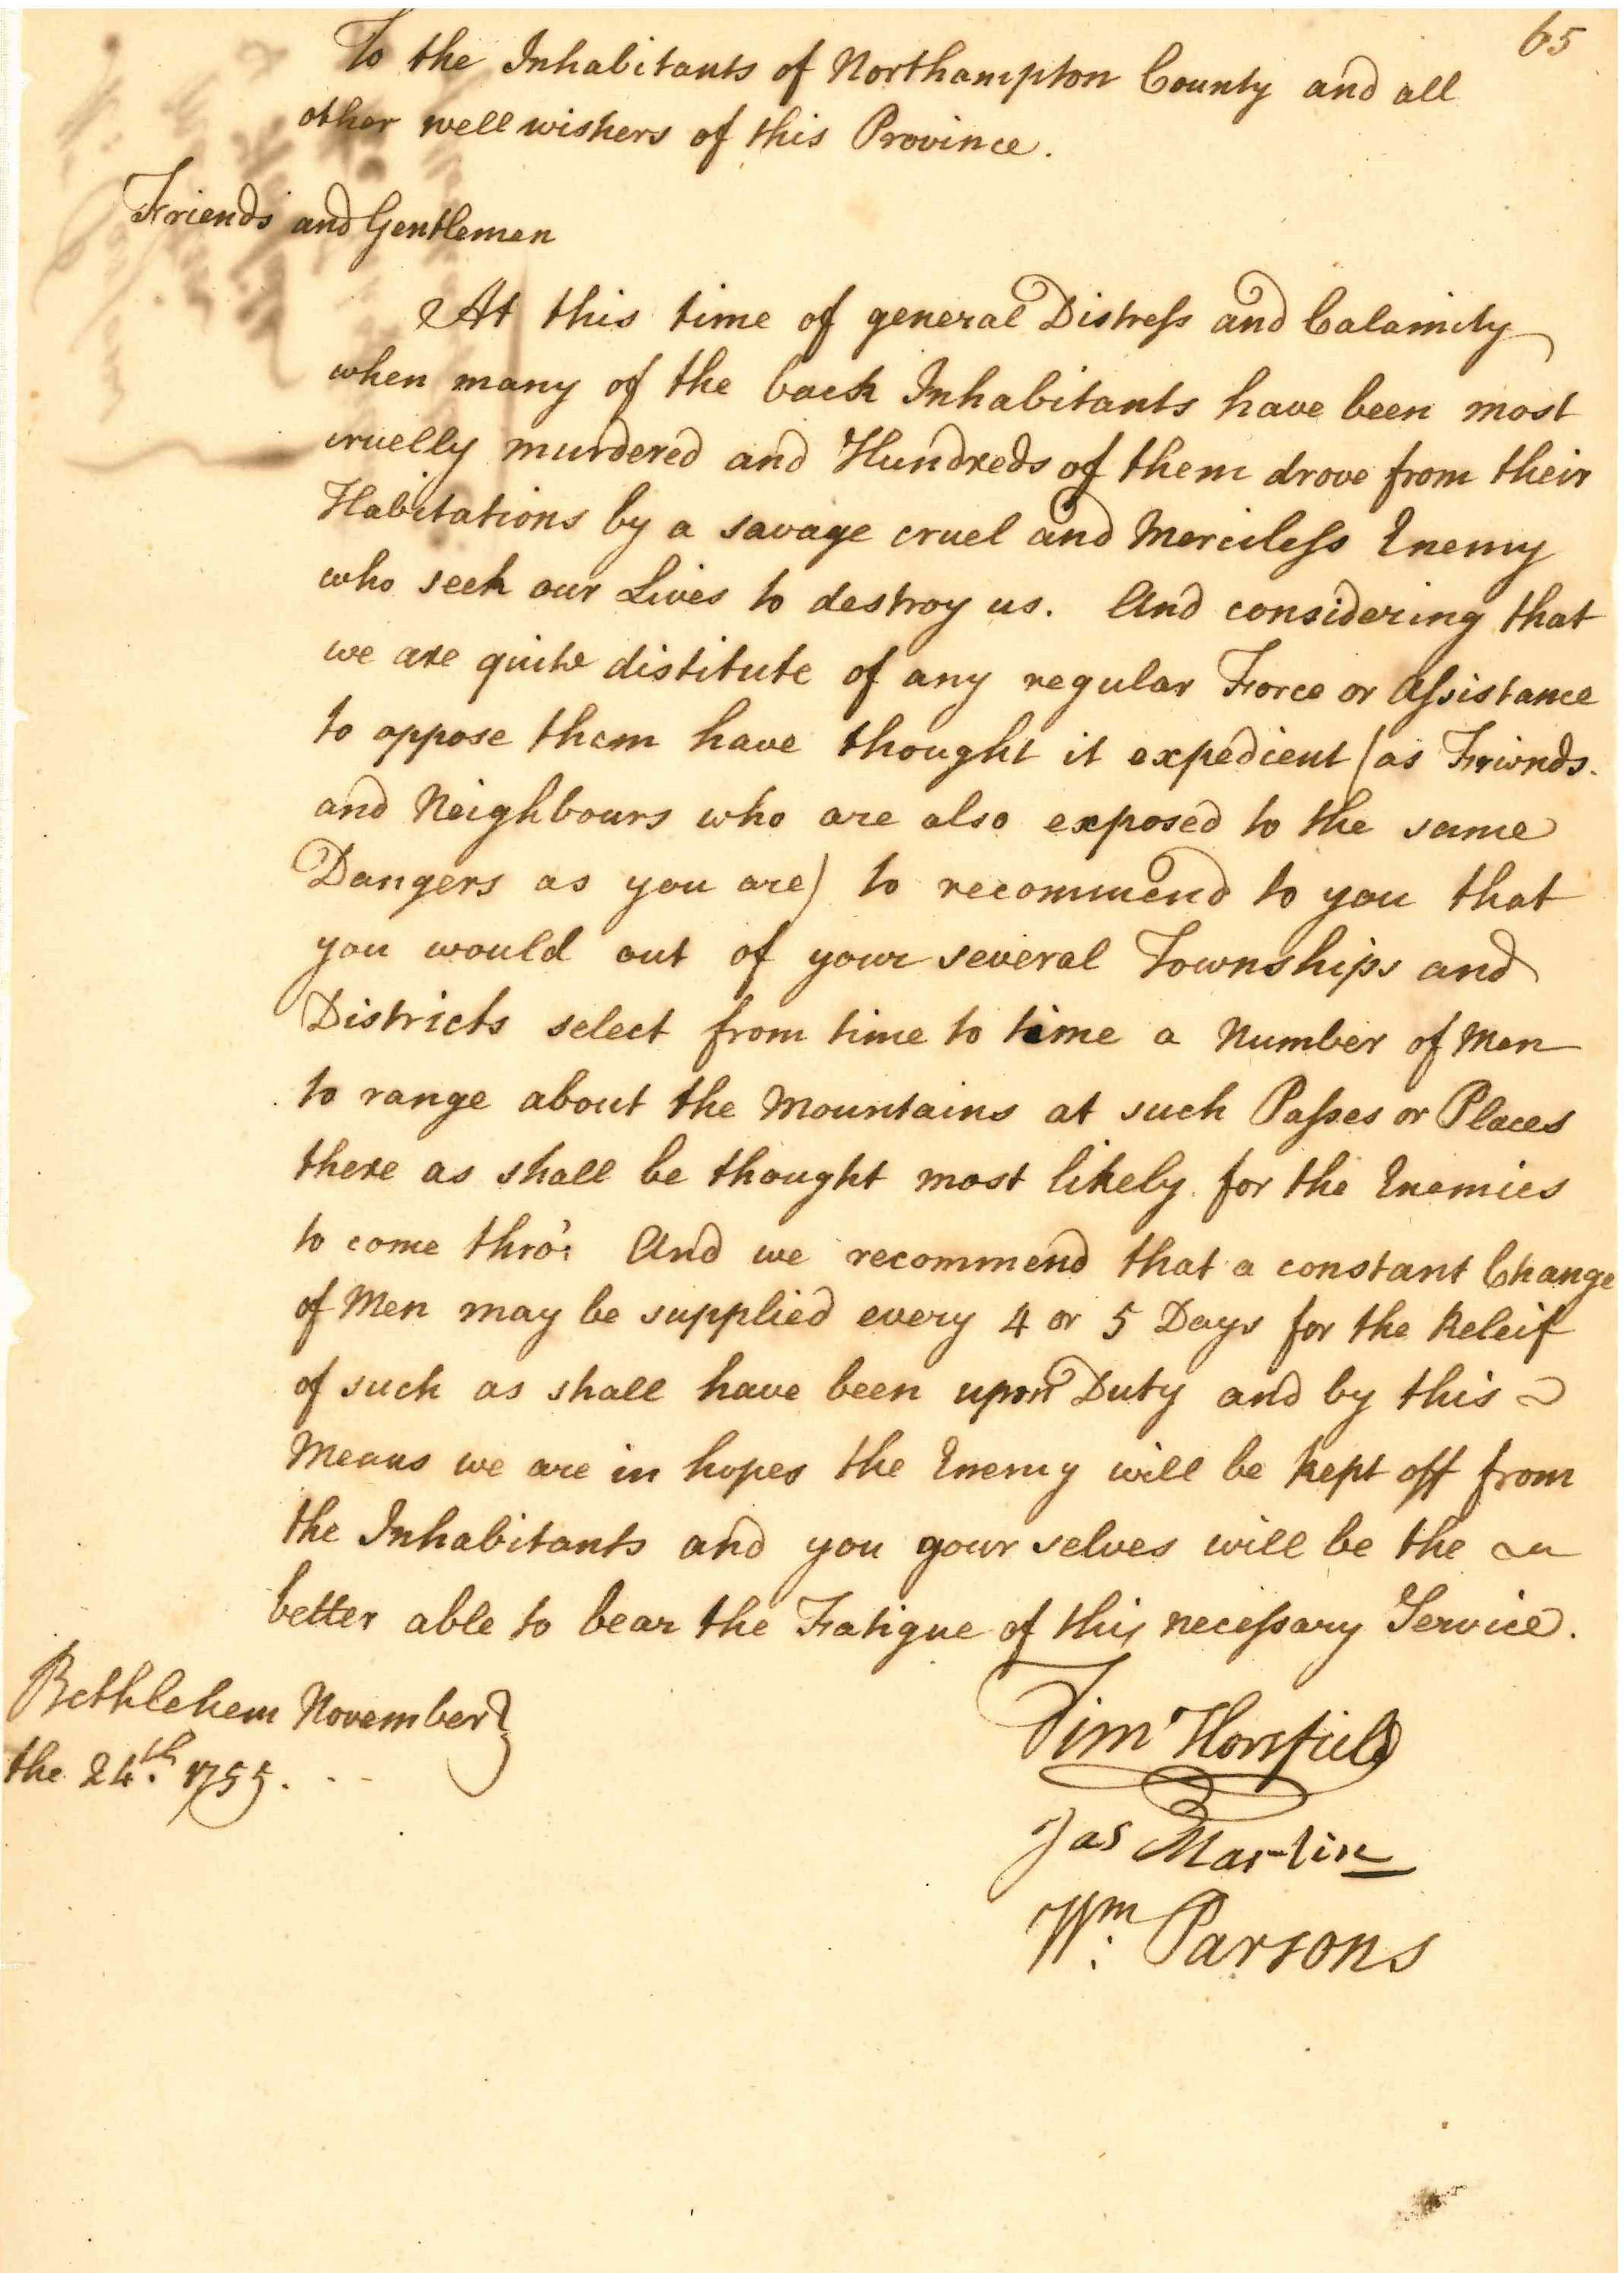 65
To the Inhabitants of Northampton County and all
other well wishers of this Province.
Friends and Gentlemen
At this time of general Distress and Calamity
when many of the back Inhabitants have been most
cruelly murdered and Hundreds of them drove from their
Habitations by a savage cruel and Merciless Enemy
who seek our Lives to destroy us. And considering that
we are quite distitute of any regular Force or Assistance
to oppose them have thought it expedient (as Friends
and Neighbours who are also exposed to the same
Dangers as you are) to recommend to you that
you would out of your several Townships and
Districts select from time to time a Number of Men
to range about the Mountains at such Passes or Places
there as shall be thought most likely for the Enemies
to come thro': And we recommend that a constant Change
of Men may be supplied every 4 or 5 Days for the Releif
of such as shall have been upon Duty and by this
Means we are in hopes the Enemy will be kept off from
the Inhabitants and you your selves will be the
better able to bear the Fatigue of this necessary Service.
Bethlehem November
the 24th. 1755.
Tim Horsfield
Jas Martin
Wm. Parsons